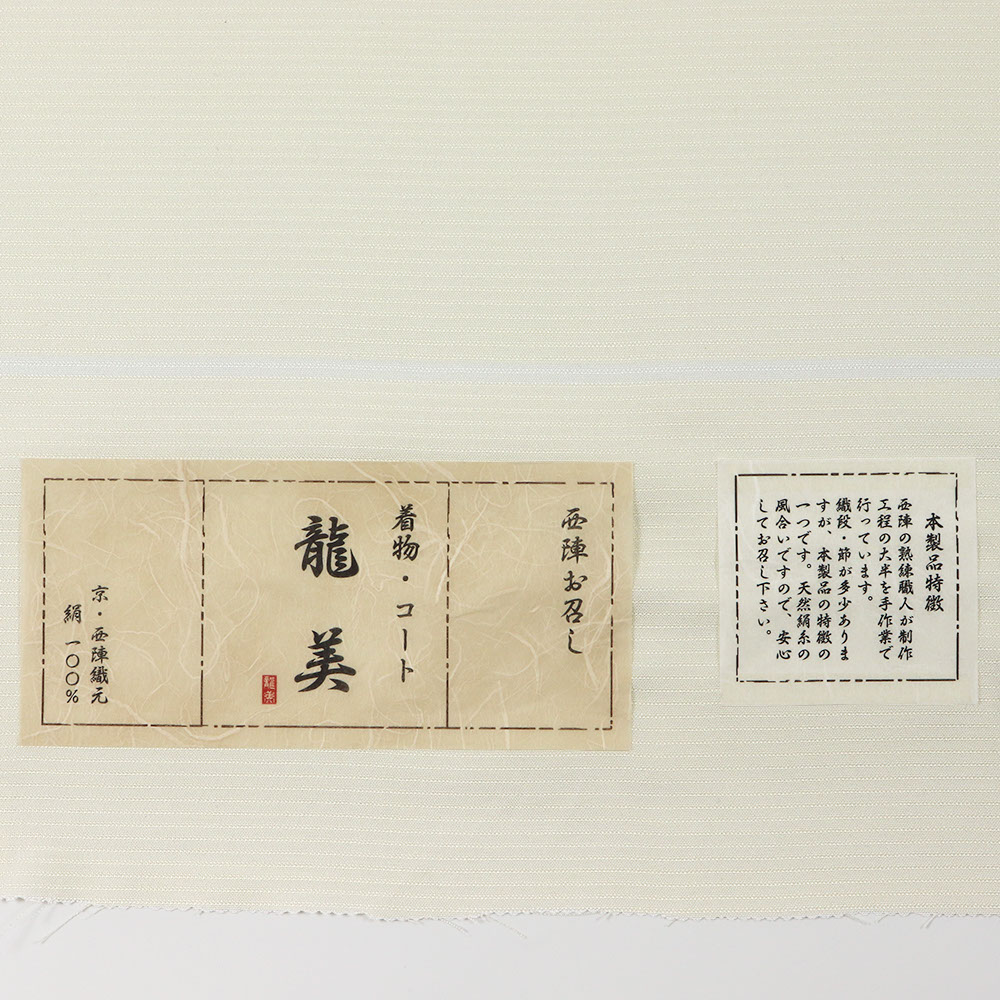 西陣お召し
着物・コート
龍美
京・西陣織元
絹一〇〇%
本製品特徴
西陣の熟練職人が制作
工程の大半を手作業で
行っています。
織段・節が多少ありま
すが、本製品の特徴の
一つです。天然絹糸の
風合いですので、安心
してお召し下さい。